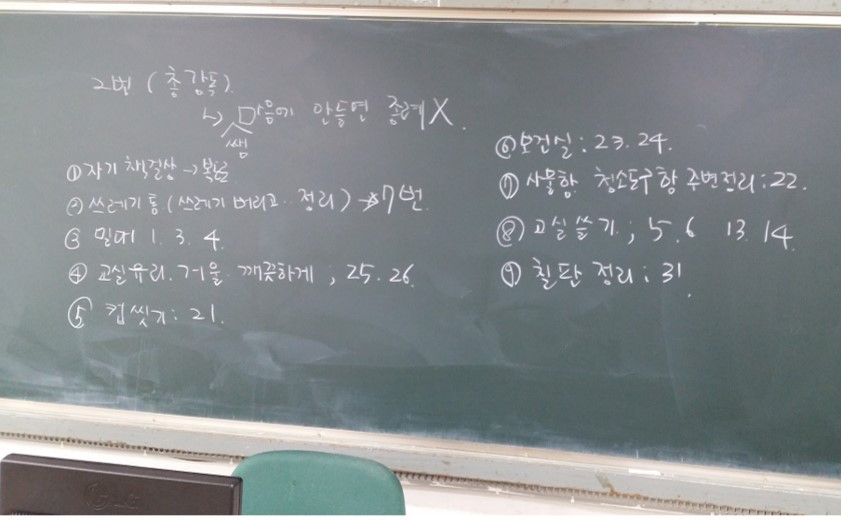 2번 (총감독)
↳ 마음에 안들면 종례 X.
쌤
① 자기 책걸상 → 복도
② 쓰레기통 (쓰레기 버리고.. 정리) → 7번
③ 밀대 1. 3. 4.
④ 교실유리. 거울 깨끗하게 ; 25. 26.
⑤ 컵씻기 : 21.
⑥ 보건실 : 23. 24.
⑦ 사물함 청소도구함 주변정리 : 22.
⑧ 교실쓸기 ; 5. 6 13. 14.
⑨ 칠판 정리 : 31.
LG